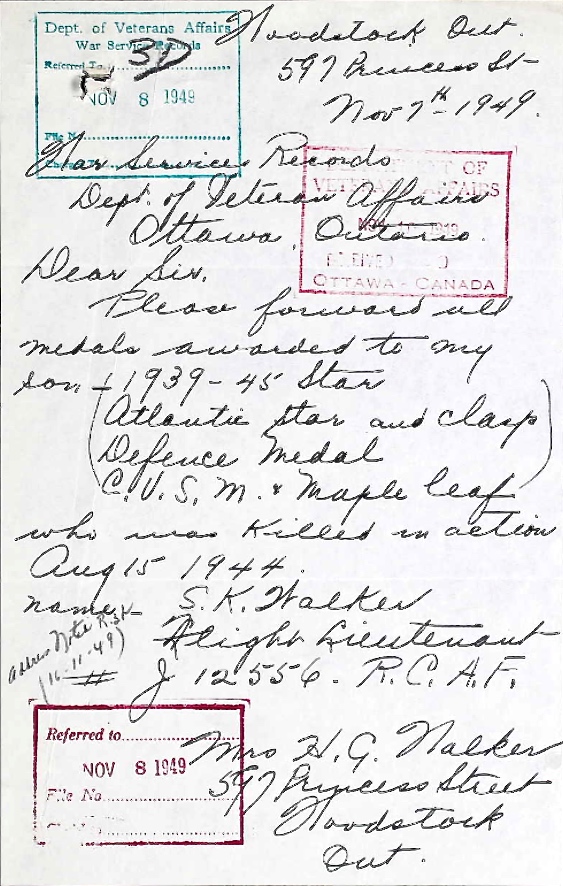 Dept. of Veterans Affairs
War Service Records
Referred To
NOV 8 1949
File No.
Woodstock Ont.
597 Princess St
Nov 7th - 1949.
War Services Records
Dept. of Veteran Affairs
Ottawa, Ontario.
DEPARTMENT OF
VETERANS AFFAIRS
1949
RECEIVED
OTTAWA - CANADA
Dear Sir,
Please forward all
medals awarded to my
son - 1939-45 Star
(Atlantic star and clasp
Defence Medal
C.V.S.M. & Maple leaf)
who was Killed in action
Aug 15 1944.
name - S.K. Walker
Flight Lieutenant
J 12556. R.C.A.F.
Noted
(16-11-49)
Referred to
NOV 8 1949
File No.
Mrs H. G. Walker
597 Princess Street
Woodstock
Ont.